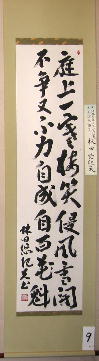 庭上一寒梅笑侵風雪開
不争又不力自成百花魁
林田悠紀夫書
林田悠紀夫
9